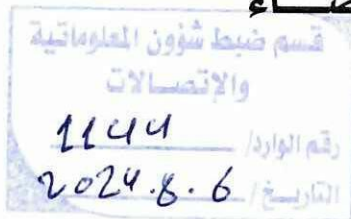 قسم ضبط شؤون المعلوماتية
والإتصالات
رقم الوارد/ 1144
التاريخ/ 2024.8.6